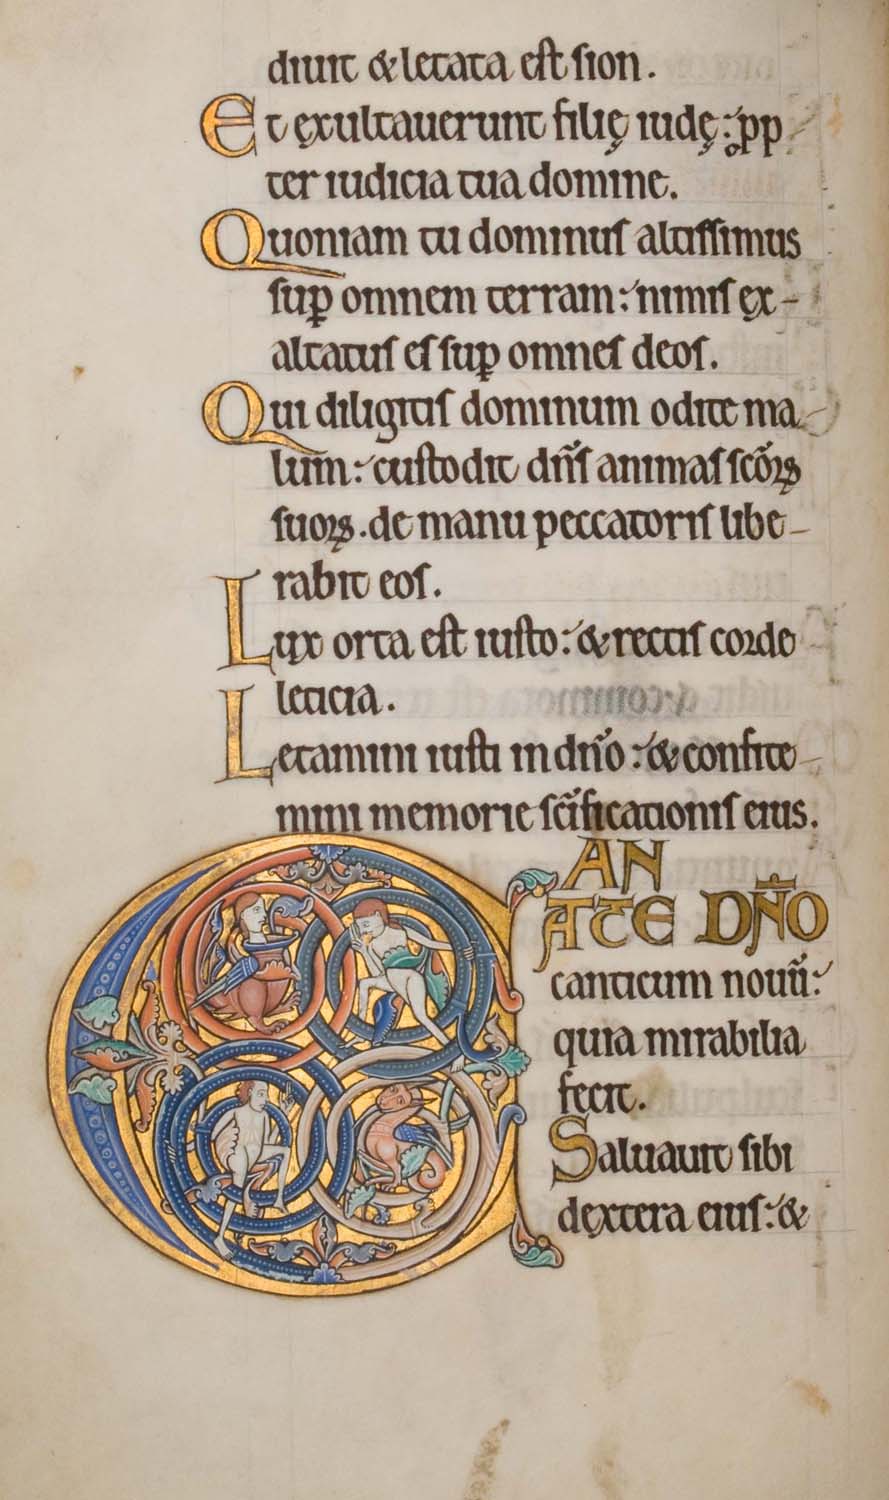 diuit & letata est sion.
Et exultauerunt filię iudę: pp
ter iudicia tua domine.
Quoniam tu dominus altissimus
sup omnem terram: nimis ex-
altatus es sup omnes deos.
Qui diligitis dominum odite ma
lum: custodit dn̄s animas sc̄oꝝ
suoꝝ. de manu peccatoris libe-
rabit eos.
Lux orta est iusto: & rectis corde
leticia.
Letamini iusti in dn̄o: & confite-
mini memorie sc̄ificationis eius.
CAN
TATE DN̄O
canticum nouū:
quia mirabilia
fecit.
Saluauit sibi
dextera eius: &